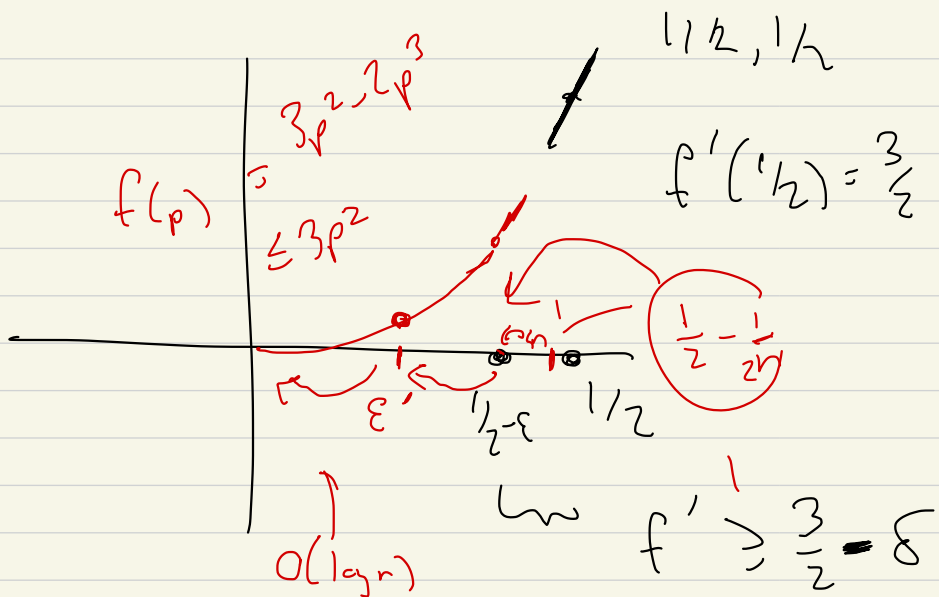 1/2, 1/2
3p^2 - 2p^3
=
f(p)
≤ 3p^2
f'(1/2) = 3/2
1/2 - 1/2n
ε'
1/2-ε
1/2
f' ≥ 3/2 - δ
O(logn)